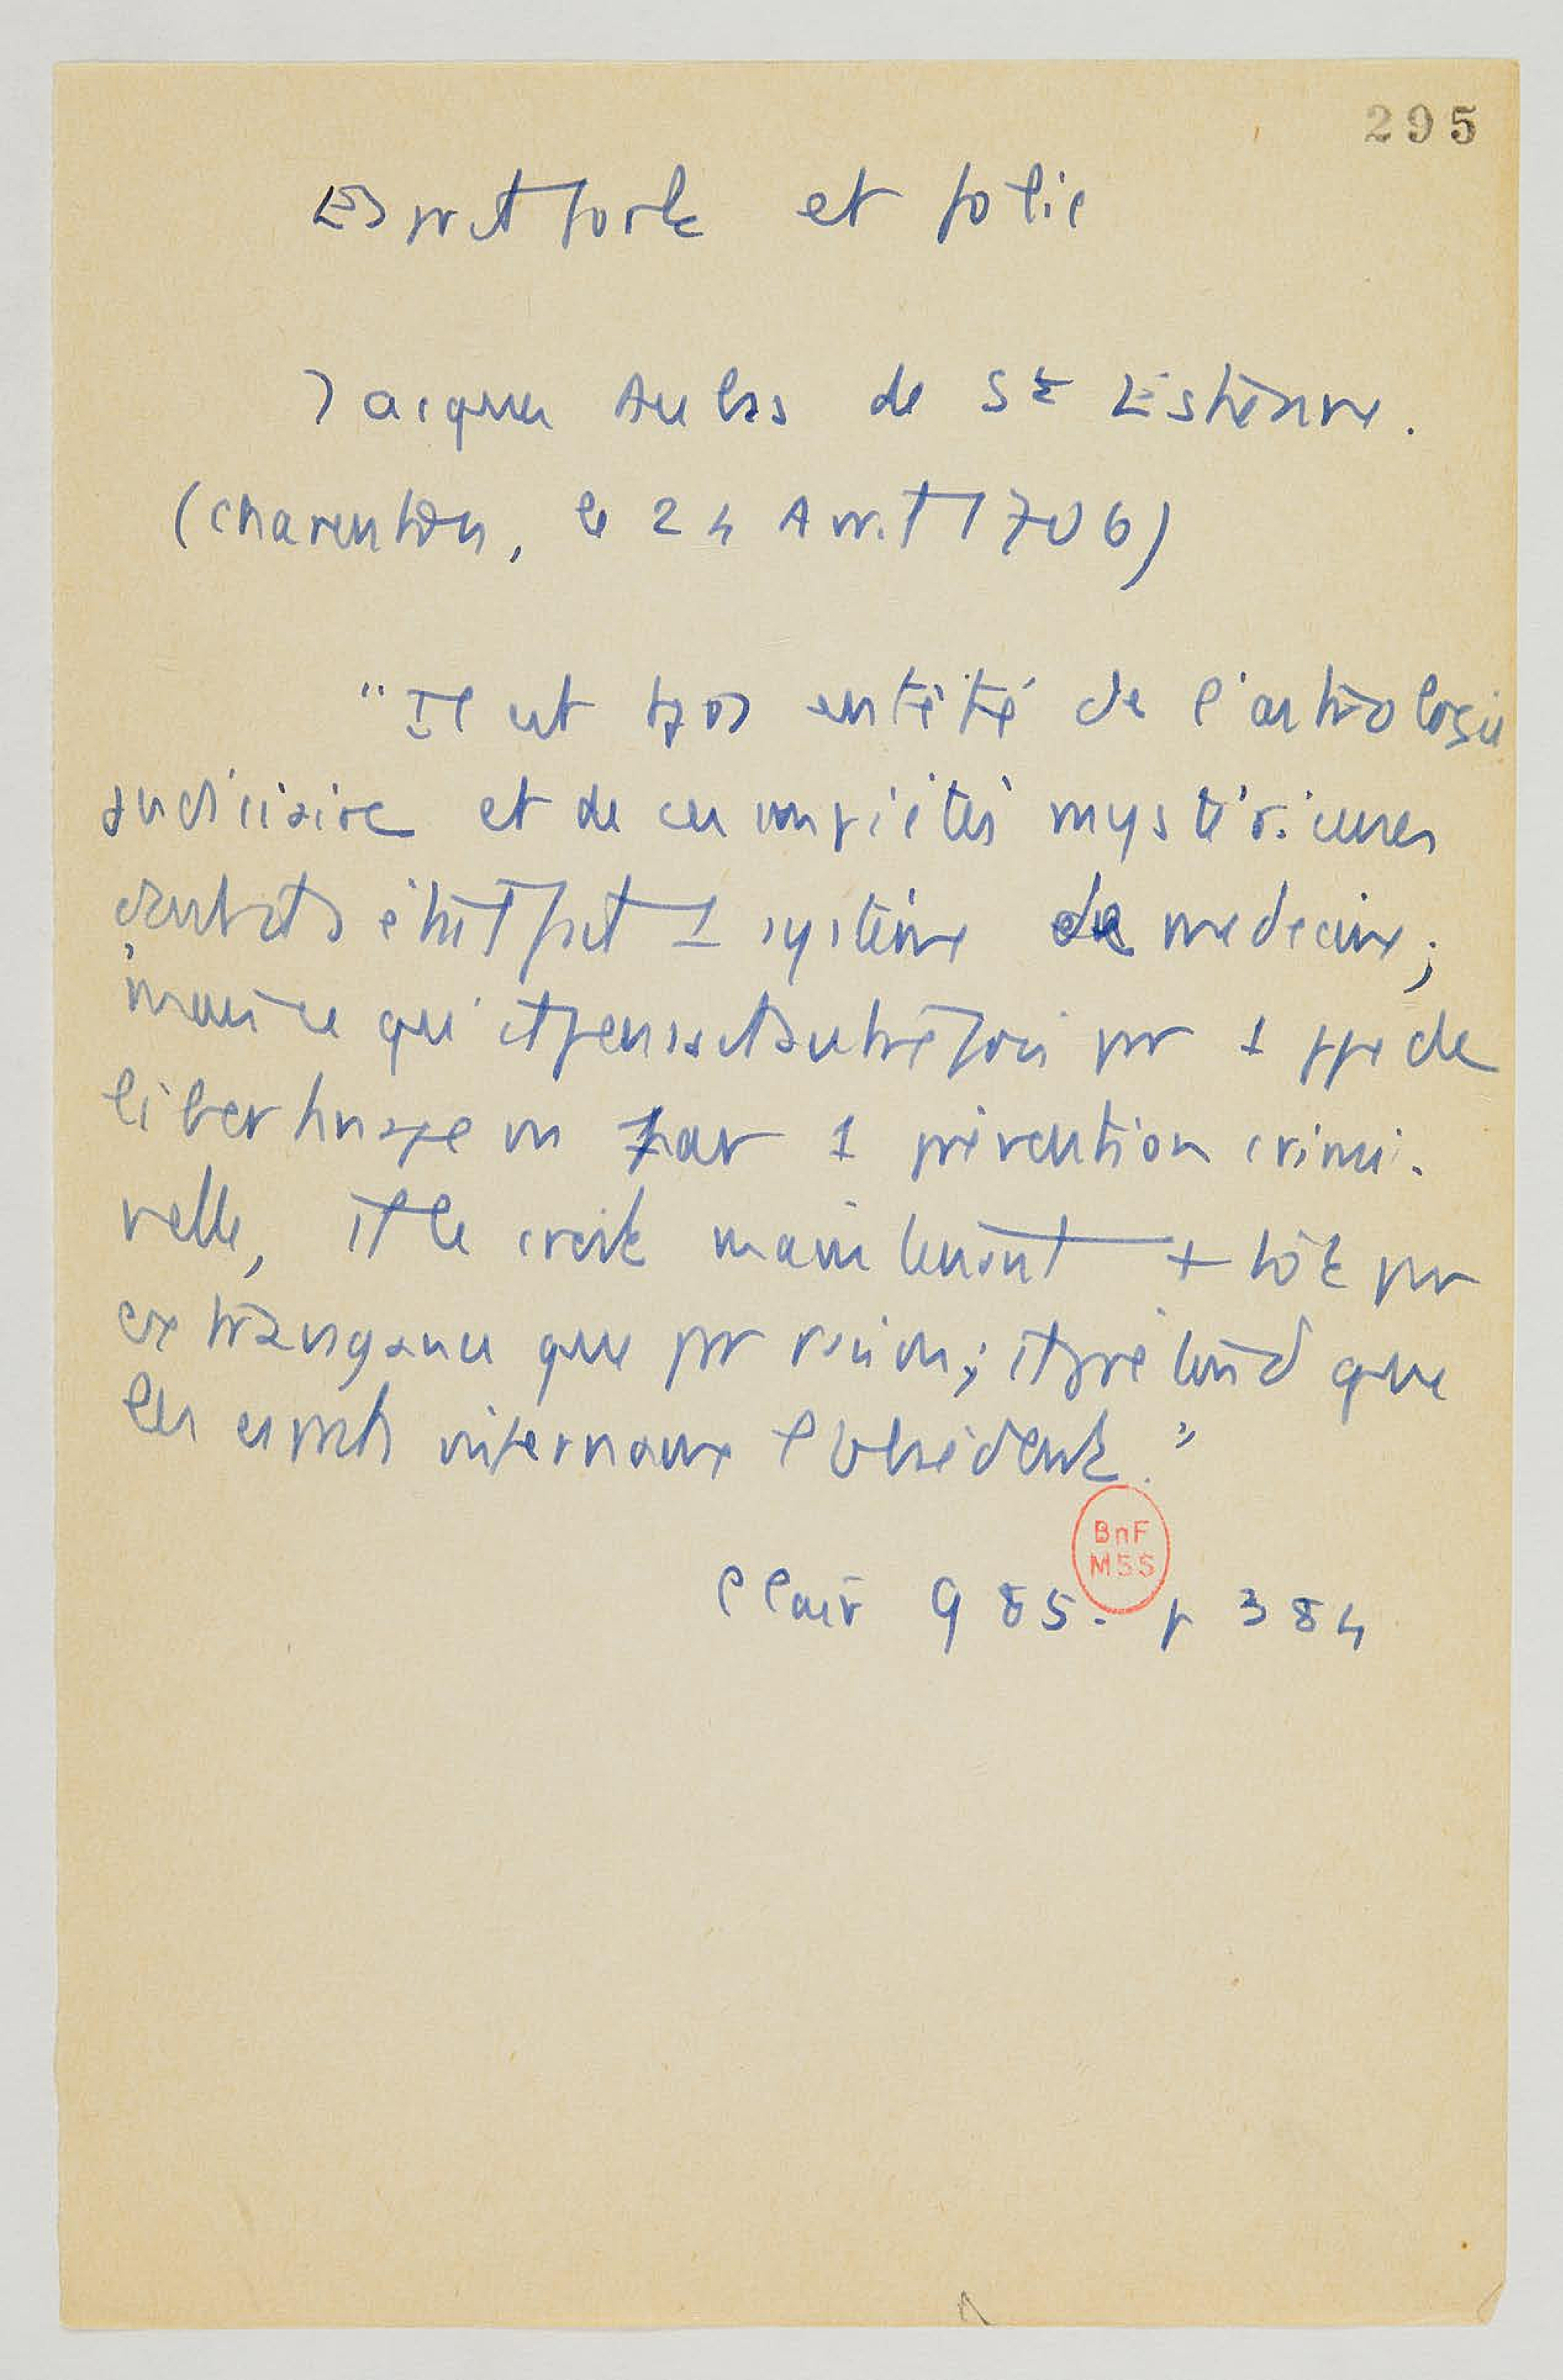 295
Esprit fort et folie
Jacques Aubas de St Estèsve.
(Charenton, le 24 Avril 1706)
"Il est trop entêté de l'astrologie
judiciaire et de ces impiétés mystérieuses
dont il s'était fait 1 système de medecine;
mais ce qu'il pensait autrefois pr 1 ppe de
libertinage ou par 1 prévention crimi-
nelle, il le croit maintenant + tôt pr
extravagance que pr raison; il prétend que
les esprits infernaux l'obsèdent."
BnF
MSS
Clair 985. p 384